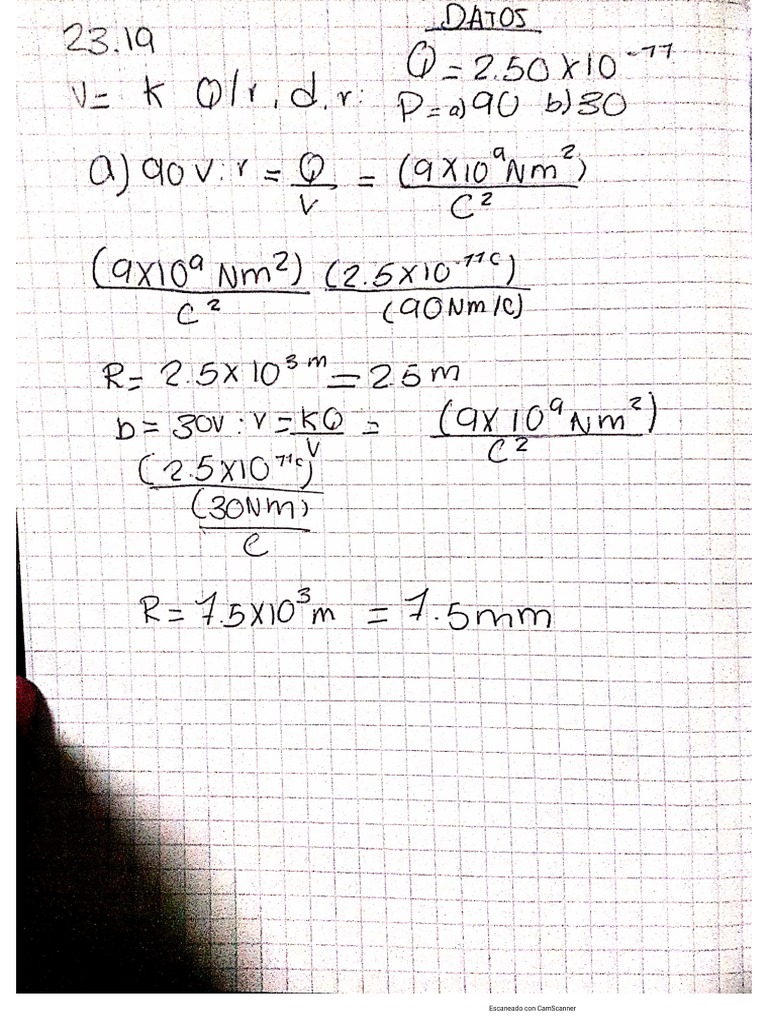 DATOS
23.19
Q = 2.50 x 10⁻¹¹
V = k Q/r, d.r: P = a) 90 b) 30
a) 90 V: r = Q/V = (9x10⁹ Nm²)/C²
(9x10⁹ Nm²)/C² (2.5x10⁻¹¹ C)/(90 Nm/C)
R = 2.5 x 10³ m = 25 m
b = 30V: V = KQ/V = (9x10⁹ Nm²)/C²
(2.5x10¹¹ C)
(30Nm)
C
R = 7.5x10³ m = 7.5mm
Escaneado con CamScanner